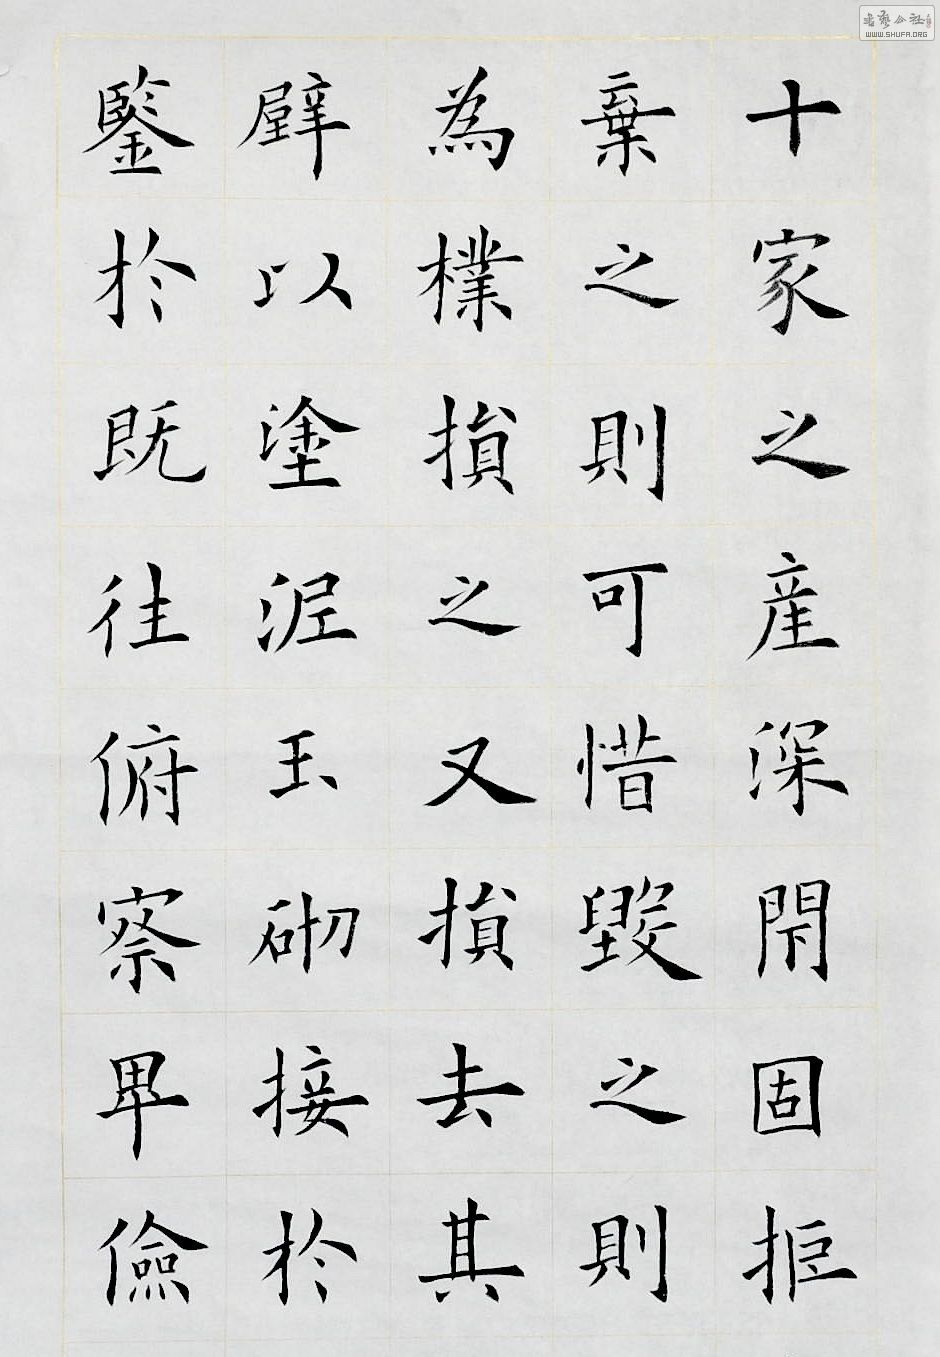 十家之產深閇固拒
棄之則可惜毀之則
為樸損之又損去其
壁以塗泥玉砌接於
鑒於既往俯察卑儉
書藝公社
WWW.SHUFA.ORG